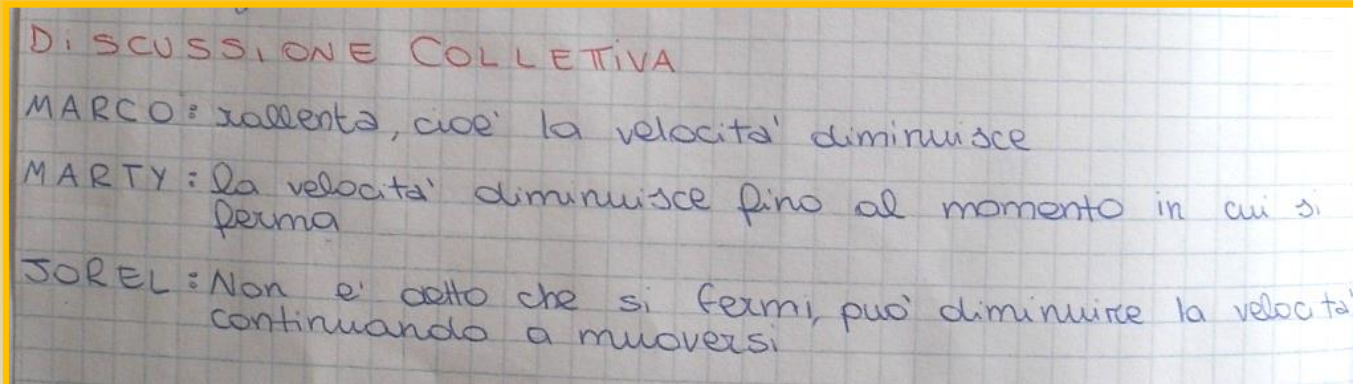 DISCUSSIONE COLLETTIVA
MARCO: rallenta, cioe' la velocita' diminuisce
MARTY: la velocita' diminuisce fino al momento in cui si
ferma
JOREL: Non e' detto che si fermi, puo' diminuire la velocita'
continuando a muoversi